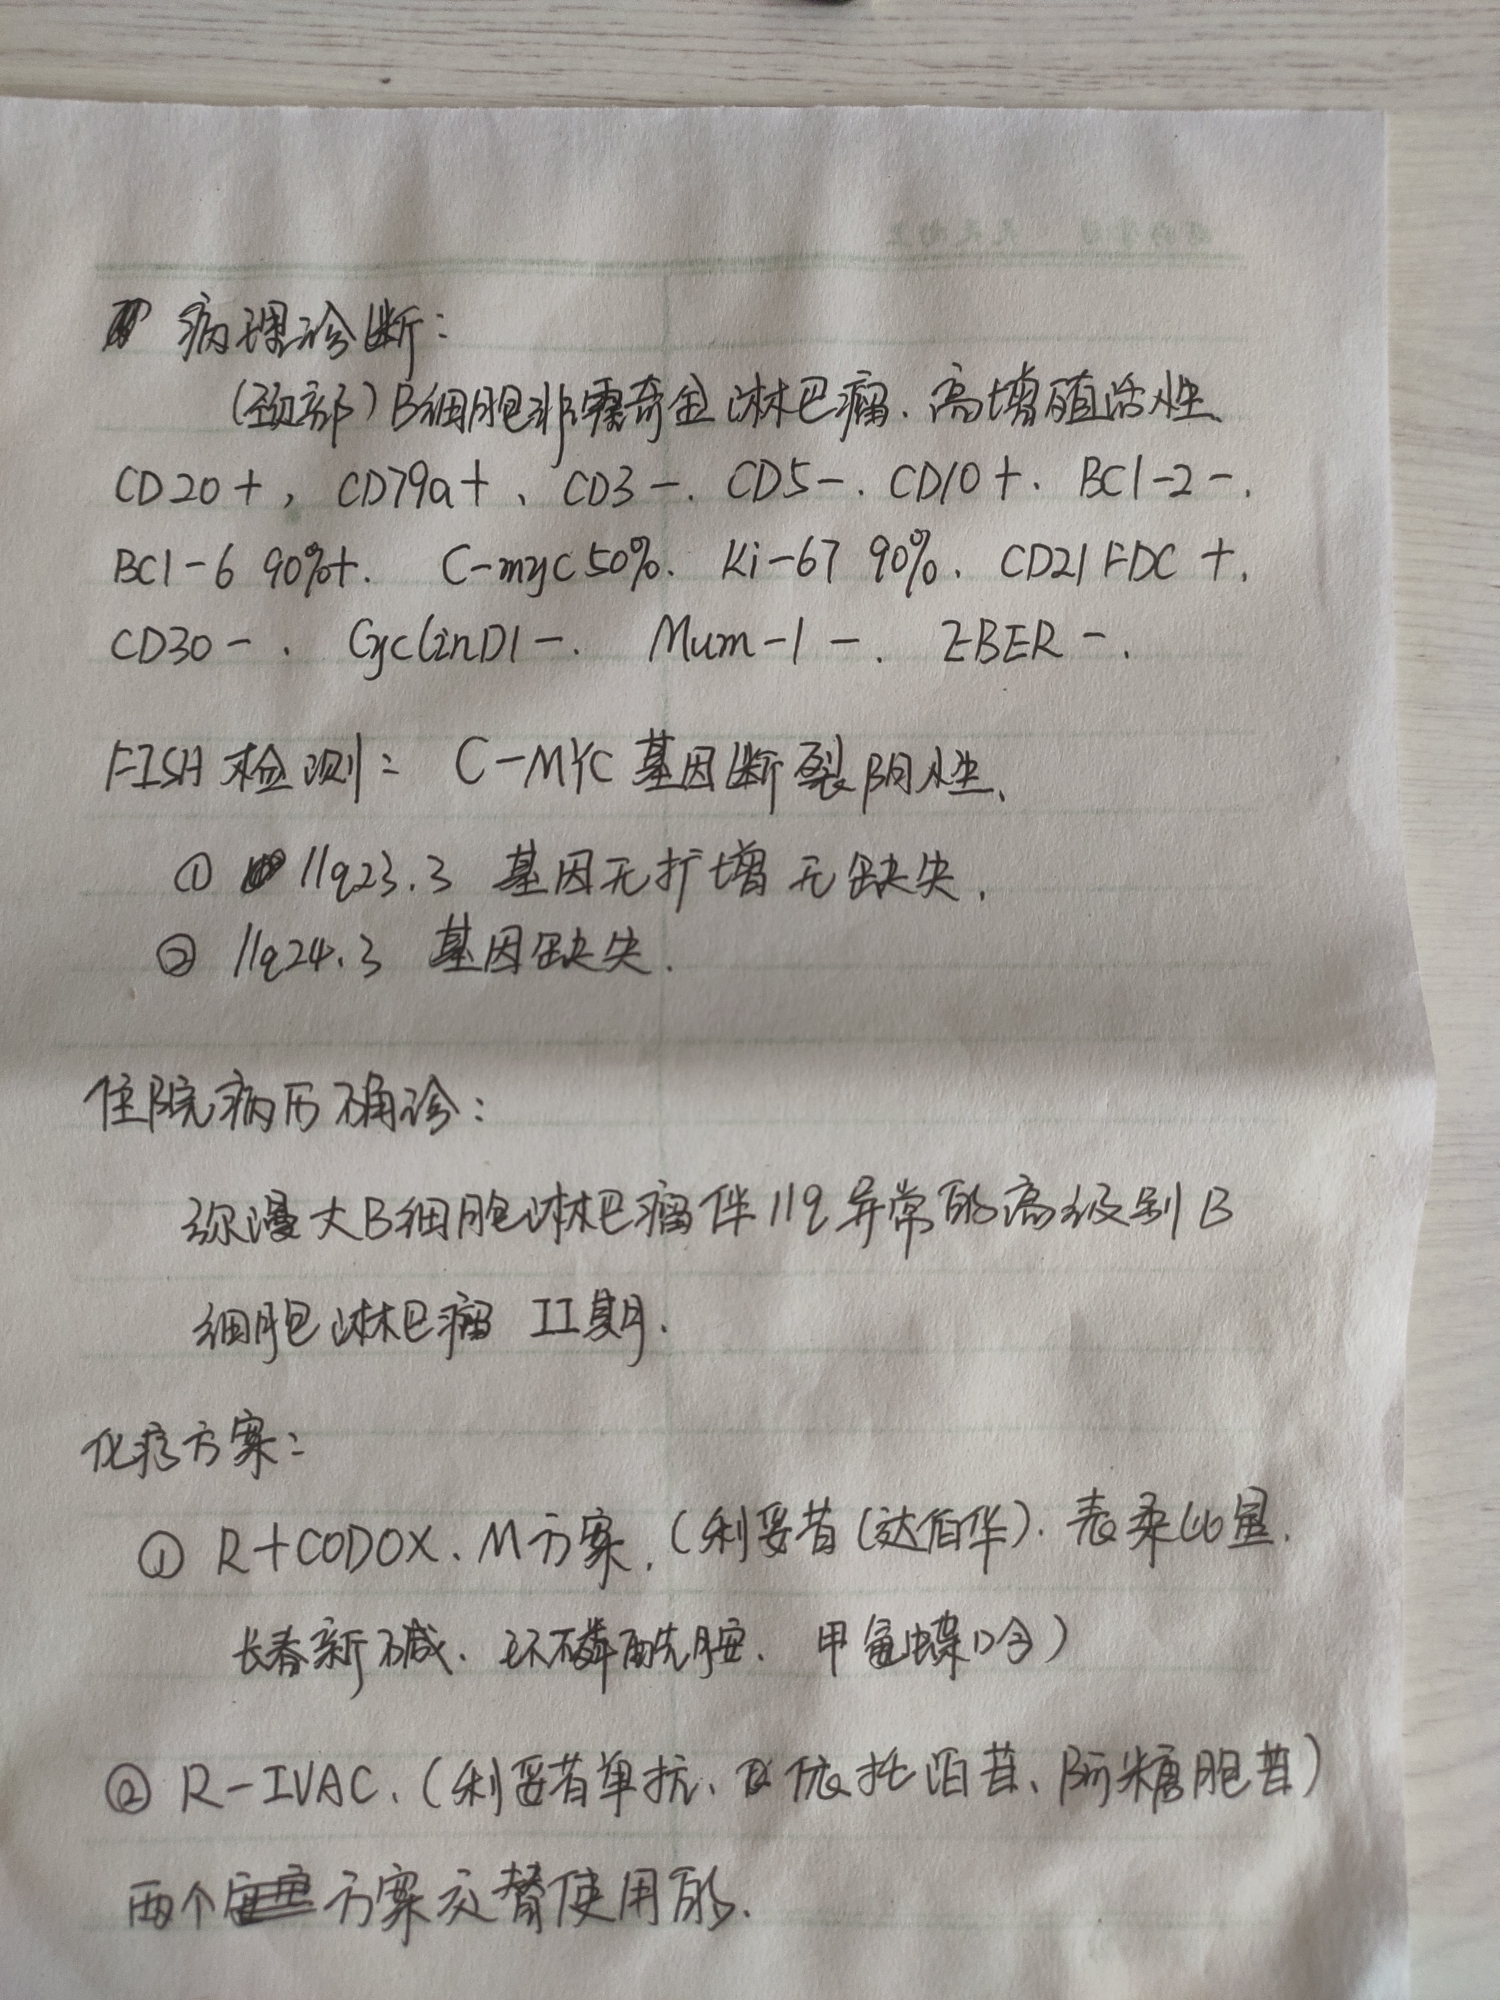 病理诊断：
(颈部) B细胞非霍奇金淋巴瘤、高增殖活性、
CD20+, CD79a+、CD3-、CD5-、CD10+、BCl-2-、
BCl-6 90%+、C-myc 50%、Ki-67 90%、CD21 FDC +、
CD30-、CyclinD1-、Mum-1 -、EBER-、
FISH检测：C-MYC基因断裂阴性、
① 11q23.3 基因无扩增无缺失、
② 11q24.3 基因缺失.
住院病历确诊：
弥漫大B细胞淋巴瘤伴11q异常的高级别B
细胞淋巴瘤 II期.
化疗方案：
① R+CODOX、M方案、(利妥昔(达伯华)、表柔比星、
长春新碱、环磷酰胺、甲氨蝶呤)
② R-IVAC、(利妥昔单抗、依托泊苷、阿糖胞苷)
两个方案交替使用的.